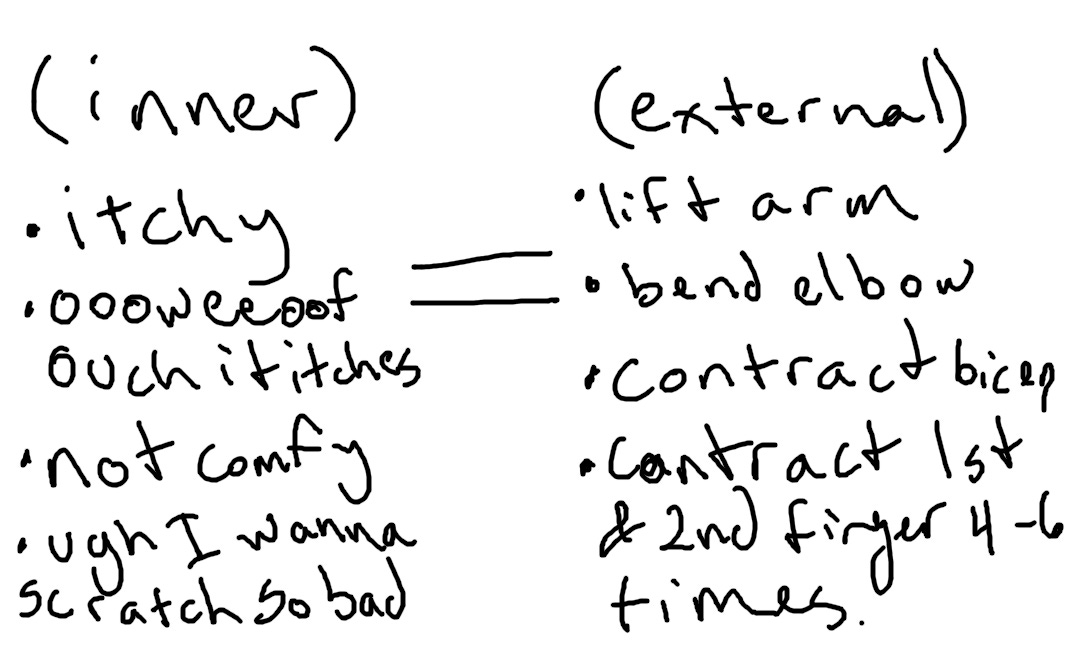 (inner)
• itchy
• oooweeoof
ouch it itches
• not comfy
• ugh I wanna
scratch so bad
=
(external)
• lift arm
• bend elbow
• contract bicep
• contract 1st
& 2nd finger 4-6
times.